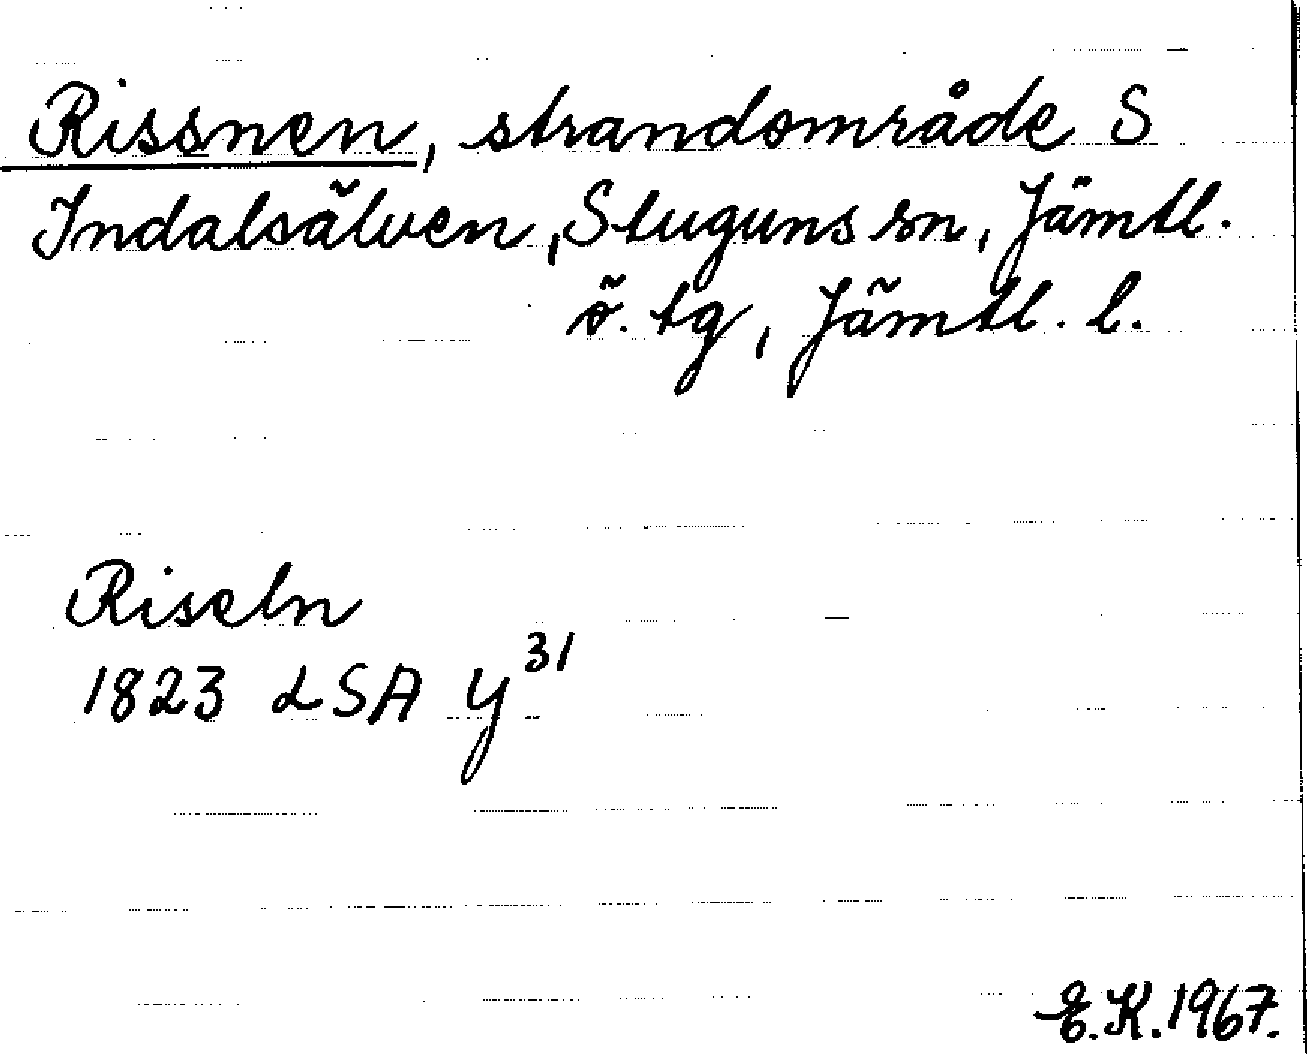 Rissnen, strandområde S
Indalsälven, Stuguns sn, Jämtl.
ö. tg, Jämtl. l.
Riseln
1823 LSA Y31
E.K. 1967.